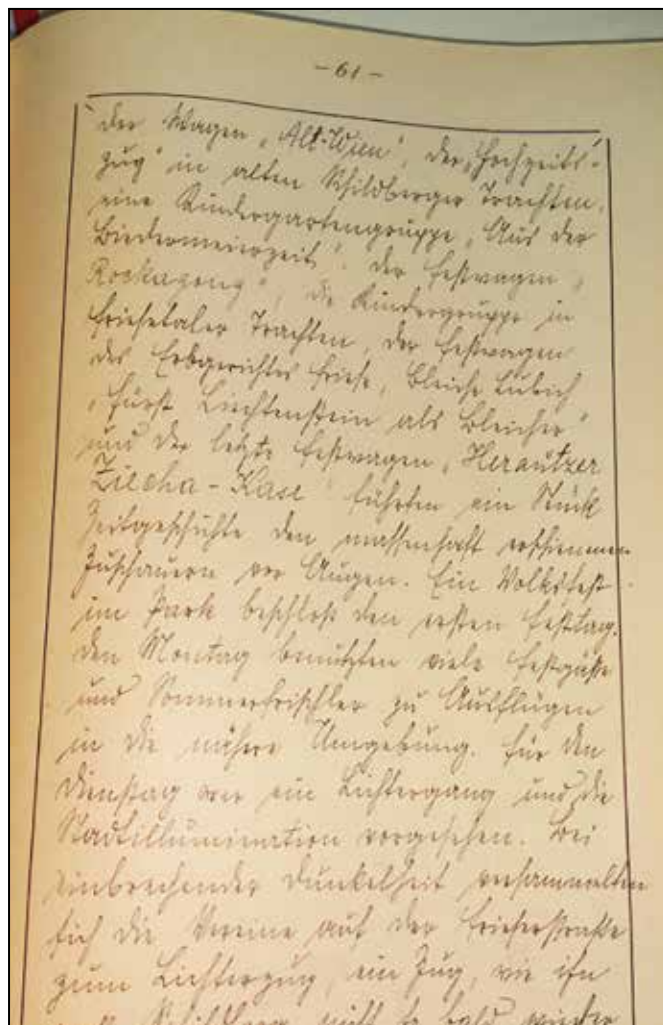 - 61 -
der Wagen „Alt-Wien", der „Hochzeits-
zug" in alten Schildberger Trachten,
eine Kindergartengruppe „Aus der
Biedermeierzeit", der Festwagen „
Rockagong", die Kindergruppe in
Friesetaler Trachten, der Festwagen
des Erbgerichtes Friese, Bleiche Lubich
„Fürst Liechtenstein als Bleicher"
und der letzte Festwagen „Herautzer
Ziecha-Kase" führten ein Stück
Zeitgeschichte den massenhaft erschienenen
Zuschauern vor Augen. Ein Volksfest
im Park beschloß den ersten Festtag.
Den Montag benützten viele Festgäste
und Sommerfrischler zu Ausflügen
in die nähere Umgebung. Für den
Dienstag war ein Lichtergang und die
Stadtillumination vorgesehen. Bei
einbrechender Dunkelheit versammelten
sich die Vereine auf der Frieserstraße
zum Lichterzug, ein Zug, wie ihn
Schildberg nicht so bald wieder